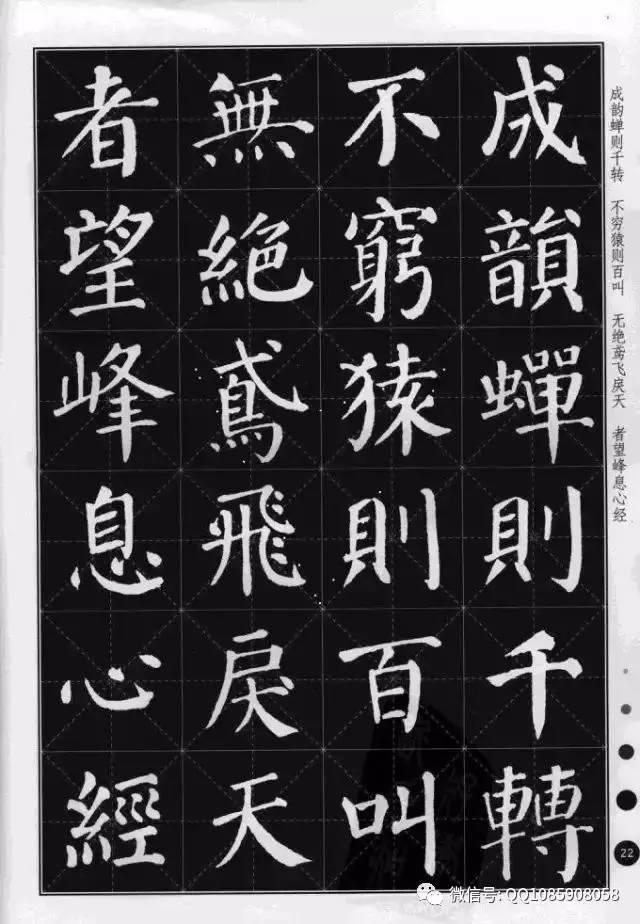 成韻蟬則千轉
不窮猿則百叫
無絶鳶飛戾天
者望峰息心經
成韵蝉则千转 不穷猿则百叫 无绝鸢飞戾天 者望峰息心经
22
微信号: QQ1085908058